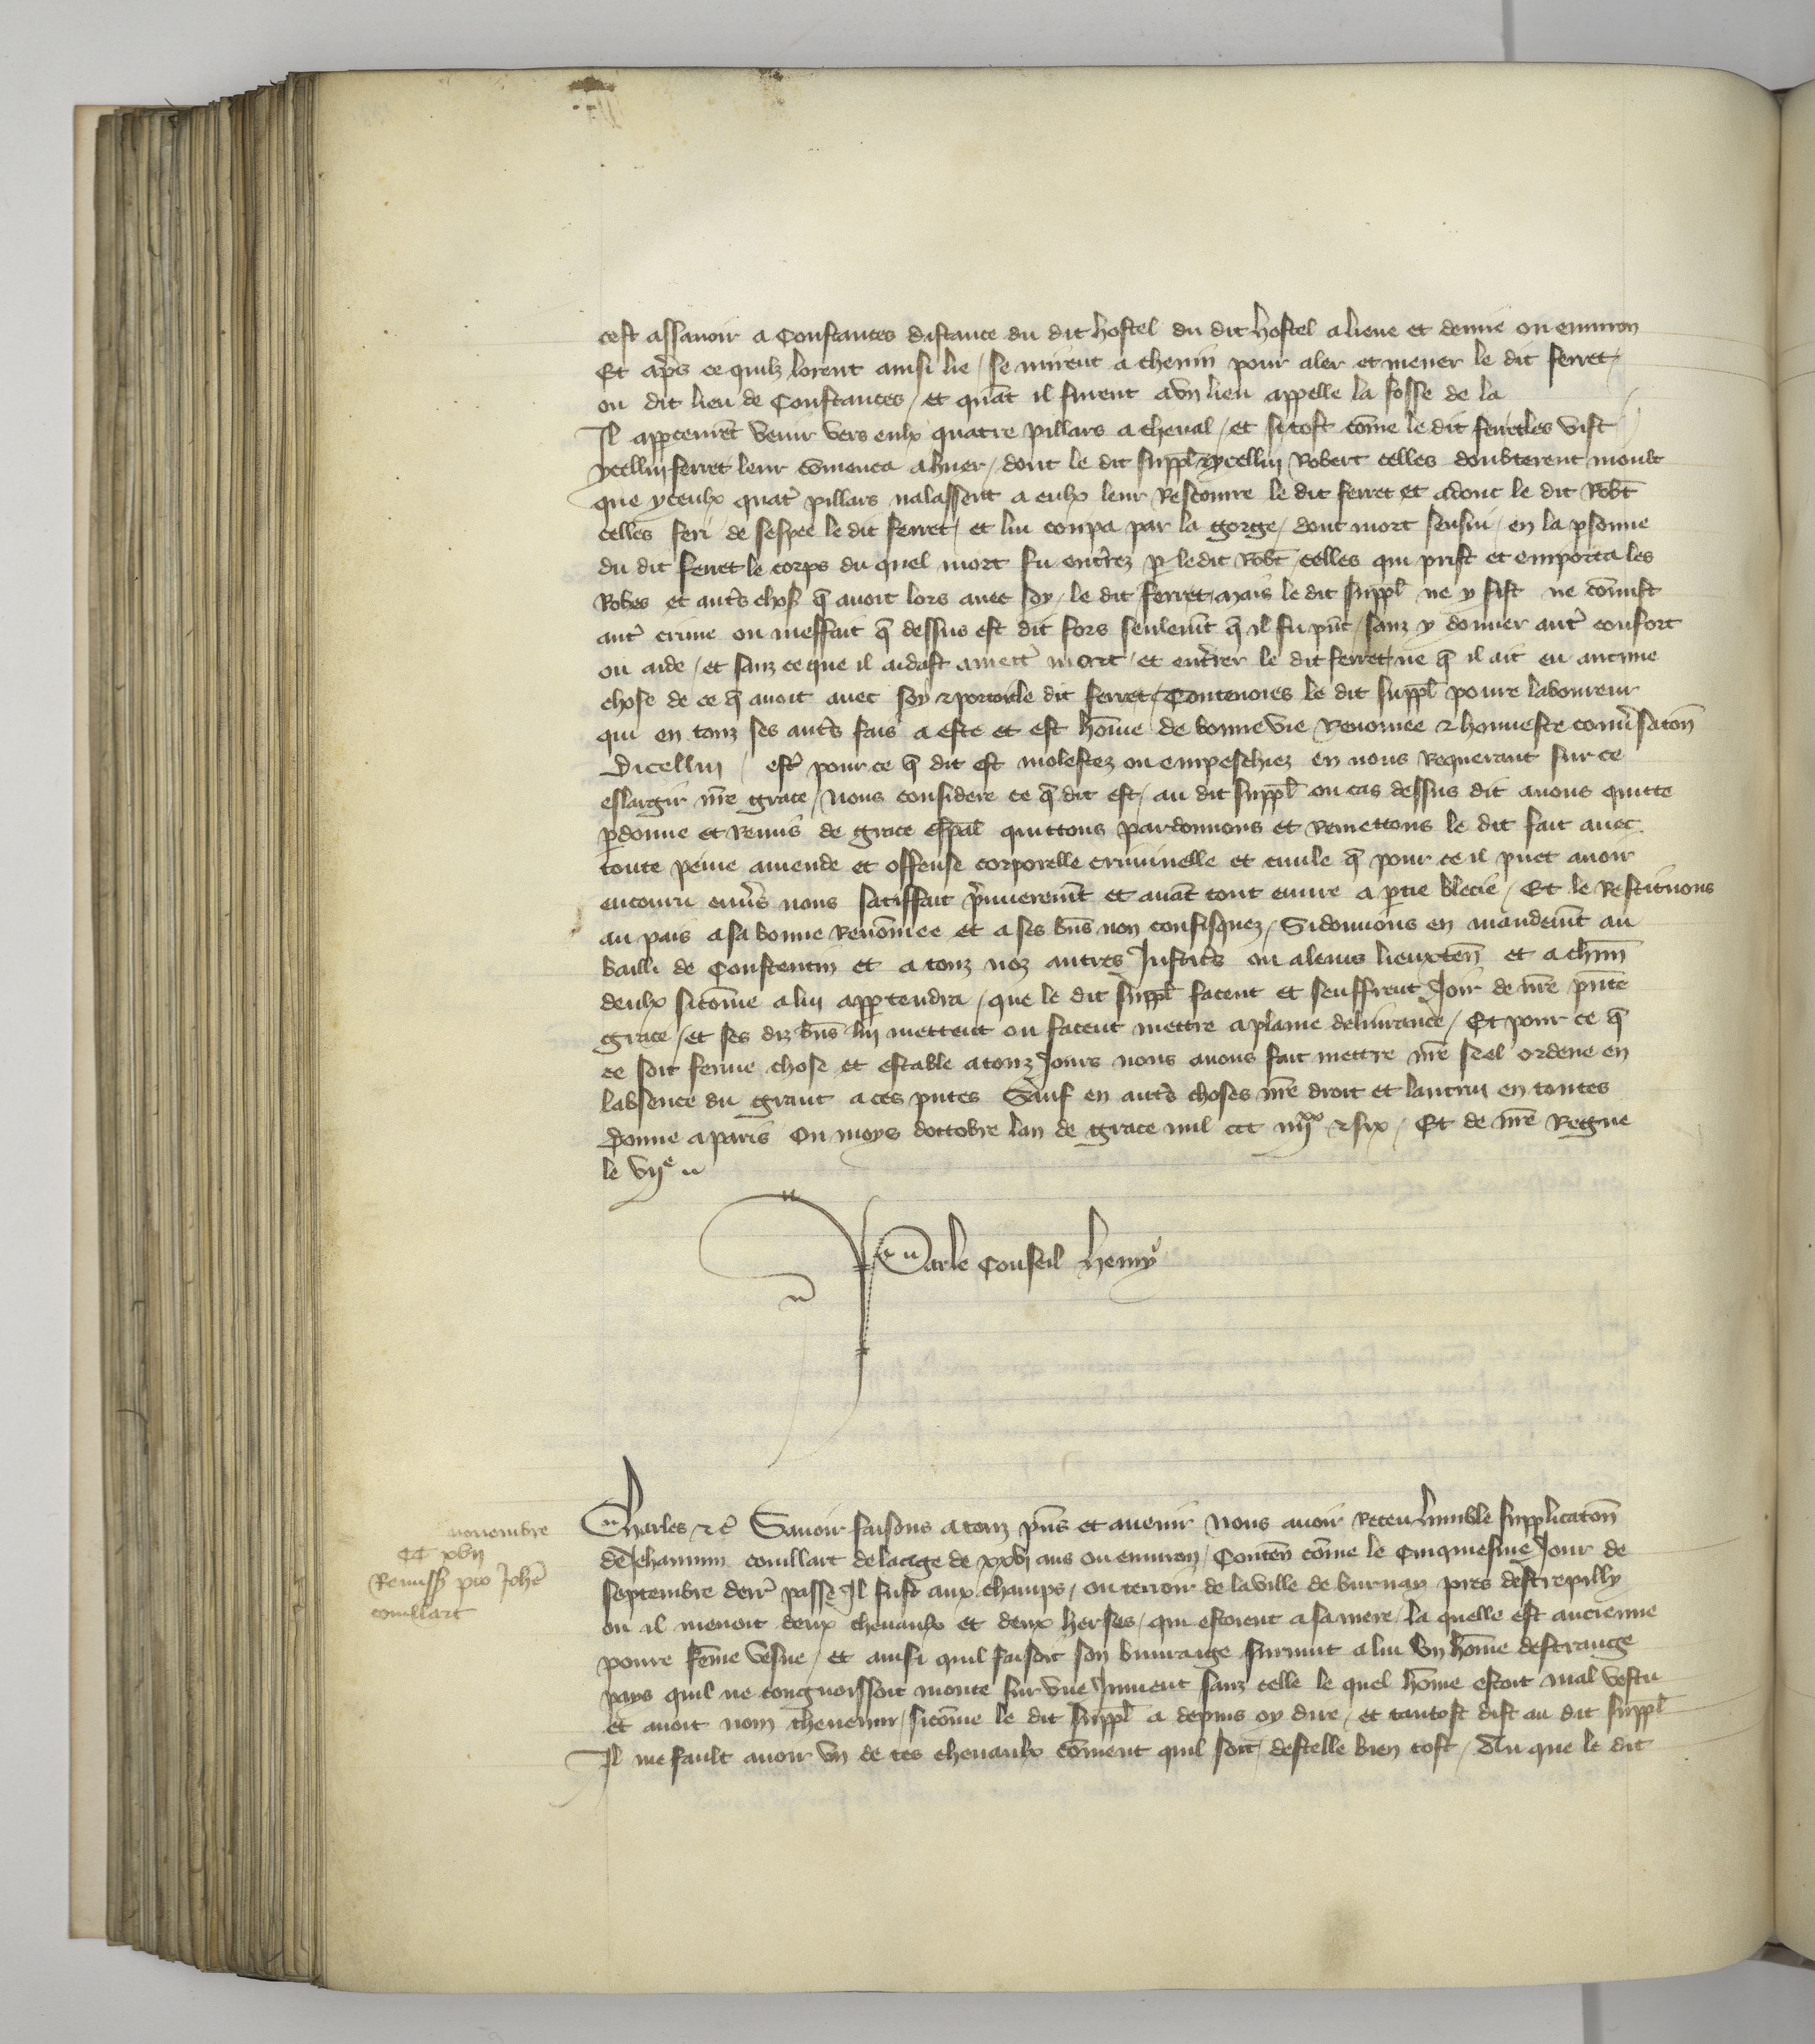 cest assavoir a Constances distance du dit hostel du dit hostel a lieue et demie ou environ
Et ap̃s ce quilz lorent ainsi lie / se mirent a chemin pour aler et mener le dit ferret /
ou dit lieu de Constances / et quãt il furent a un lieu appelle la fosse de la
Il apparceuret̃ venir vers eulx quatre pillars a cheval / et si tost com̃e le dit ferret les vist
ycellui ferret leur com̃enca a huer / dont le dit suppl̃ & ycellui Robert celles doubterent moult
que yceulx quat̃ pillars nalassent a eulx leur Rescourre le dit ferret et adonc le dit Rob̃t
celles feri de sespee le dit ferret / et lui coupa par la gorge / dont mort sensui / en la p̃sonne
du dit ferret le corps du quel mort fu ent̃rez p̱ le dit Rob̃t celles qui prist et emporta les
Robes et aut̃s chos̃ q̃ avoit lors avec soy / le dit ferret / mais le dit suppl̃ ne y fist ne com̃ist
aut̃ crime ou meffait q̃ dessus est dit fors seulem̃t q̃ il fu pñt / sanz y donner aut̃ confort
ou aide / et sanz ce que il aidast a mett̃ a mort / et ent̃rer le dit ferret / ne q̃ il ait eu aucune
chose de ce q̃ avoit avec soy & portoit le dit ferret / Toutevoies le dit suppl̃ povre laboureur
qui en touz ses aut̃s fais a este et est hom̃e de bonne vie Renomee & honneste conṽsacõn
Dicellui / est̃ pour ce q̃ dit est molestez ou empeschiez en nous Requerant sur ce
eslargir nr̃e grace / Nous considere ce q̃ dit est / au dit suppl̃ ou cas dessus dit avons quitte
p̱donne et Remis de grace esp̃al quittons pardonnons et Remettons le dit fait avec
toute peine amende et offense corporelle criminelle et civile q̃ pour ce il puet avoir
encouru enṽs nous satisffait p̃mierem̃t et avãt tout euvre a p̱tie blecie / Et le Restituons
au pais a sa bonne Renom̃ee et a ses bñs non confisquez / Si donnons en mandem̃t au
bailli de Constentin et a touz noz autres Justic̃s ou a leurs lieuxteñ et a chũn
deulx si com̃e a lui appartendra / que le dit suppl̃ facent et seuffrent Joir de nr̃e pñte
grace / et ses diz bñs lui mettent ou facent mettre a plaine delivrance / Et pour ce q̃
ce soit ferme chose et estable a touz Jours nous avons fait mettre nr̃e seel ordene en
labsence du grant a ces pñtes Sauf en aut̃s choses nr̃e droit et lautrui en toutes
donne a paris Ou moys doctobre lan de grace mil ccc iiijxx & six / Et de nr̃e Regne
le vije
Par le Conseil henry
novembre
CC xvij
Remiss̃ pro Joh̃e
couillart
Charles &c̃ Savoir faisons a touz p̃ns et avenir Nous avoir Receu lumble supplicacõn
de Jehannin couillart de laage de xxvj ans ou environ / Conteñ com̃e le Cinquiesme Jour de
septembre derr̃ passe Il fust aux champs / ou terroir de la ville de burnay pres destrepilly
ou il menoit deux chevaulx et deux herses / qui estoient a sa mere / la quelle est ancienne
povre fem̃e vesve / et ainsi quil faisoit son binnaige survint a lui un hom̃e destrange
pays quil ne congnoissoit monte sur une Jument sanz celle le quel hom̃e estoit mal vestu
et avoit nom thevenin / si com̃e le dit suppl̃ a depuis oy dire / et tantost dist au dit suppl̃
Il me fault avoir un de tes chevaulx com̃ent quil soit / destelle bien tost / Au que le dit